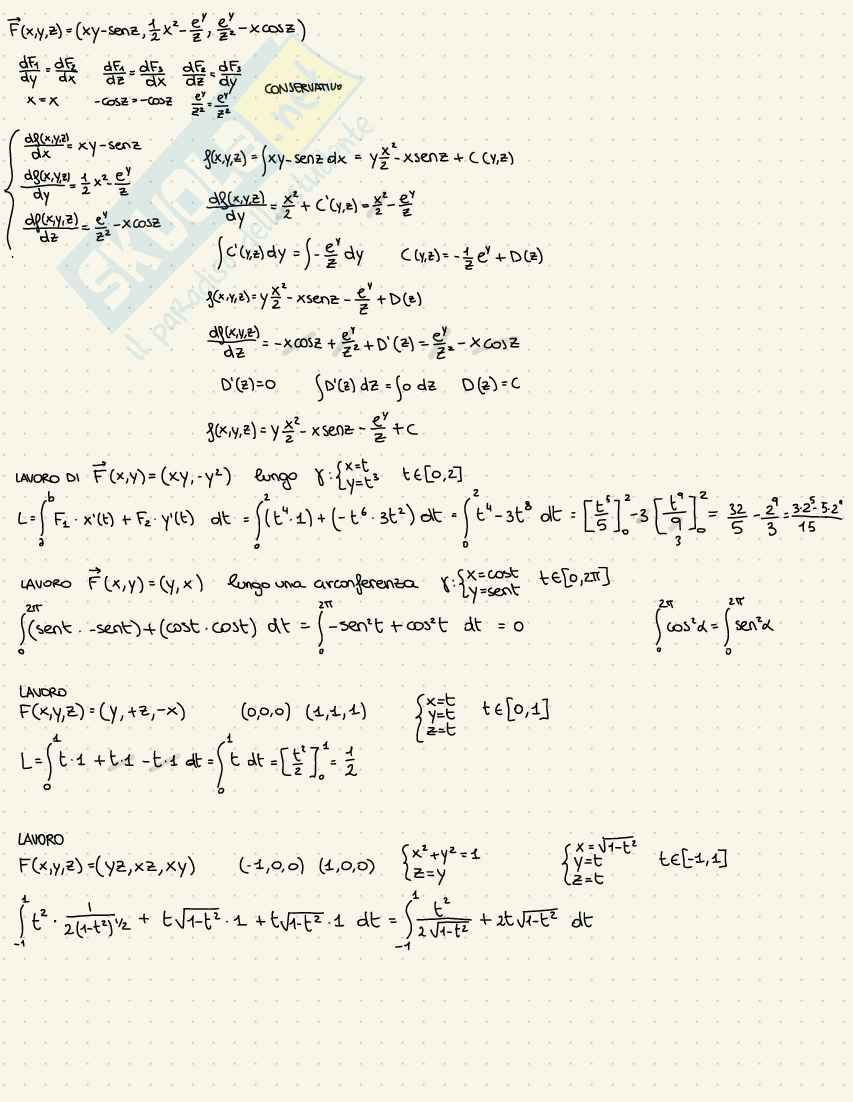 F⃗(x,y,z)=(xy-senz, 1/2 x²-e^y/z, e^y/z²-xcosz)
dF₁/dy = dF₂/dx   dF₁/dz = dF₃/dx   dF₂/dz = dF₃/dy   CONSERVATIVO
x=x   -cosz=-cosz   e^y/z² = e^y/z²
{ df(x,y,z)/dx = xy-senz
df(x,y,z)/dy = 1/2 x²-e^y/z
df(x,y,z)/dz = e^y/z² -xcosz
f(x,y,z)=∫xy-senz dx = y x²/2 -xsenz + C(y,z)
df(x,y,z)/dy = x²/2 + C'(y,z)= x²/2 - e^y/z
∫C'(y,z)dy =∫- e^y/z dy   C(y,z)= -1/z e^y + D(z)
f(x,y,z)=y x²/2 -xsenz - e^y/z + D(z)
df(x,y,z)/dz = -xcosz + e^y/z² + D'(z) = e^y/z² -xcosz
D'(z)=0   ∫D'(z)dz=∫0 dz   D(z)=C
f(x,y,z)=y x²/2 -xsenz - e^y/z + C
LAVORO DI F⃗(x,y)=(xy,-y²) lungo γ:{x=t y=t³ t∈[0,2]
L=∫ₐᵇ F₁·x'(t) + F₂·y'(t) dt = ∫₀² (t⁴·1)+(-t⁶·3t²) dt = ∫₀² t⁴-3t⁸ dt = [t⁵/5]₀² -3[t⁹/9]₀² = 32/5 - 2⁹/3 = 3·2⁵-5·2⁹/15
3
LAVORO F⃗(x,y)=(y,x) lungo una circonferenza γ:{x=cost y=sent t∈[0,2π]
∫₀^2π (sent·-sent)+(cost·cost) dt = ∫₀^2π -sen²t+cos²t dt = 0   ∫₀^2π cos²α = ∫₀^2π sen²α
LAVORO
F(x,y,z)=(y,+z,-x)   (0,0,0) (1,1,1)   {x=t y=t z=t t∈[0,1]
L=∫₀¹ t·1 +t·1 -t·1 dt=∫₀¹ t dt = [t²/2]₀¹ = 1/2
LAVORO
F(x,y,z)=(yz,xz,xy)   (-1,0,0) (1,0,0)   {x²+y²=1 z=y   {x=√1-t² y=t z=t t∈[-1,1]
∫₋₁¹ t²· 1/2(1-t²)^1/2 + t√1-t²·1 +t√1-t²·1 dt = ∫₋₁¹ t²/2√1-t² + 2t√1-t² dt
SKUOLA.net
il paradiso dello studente